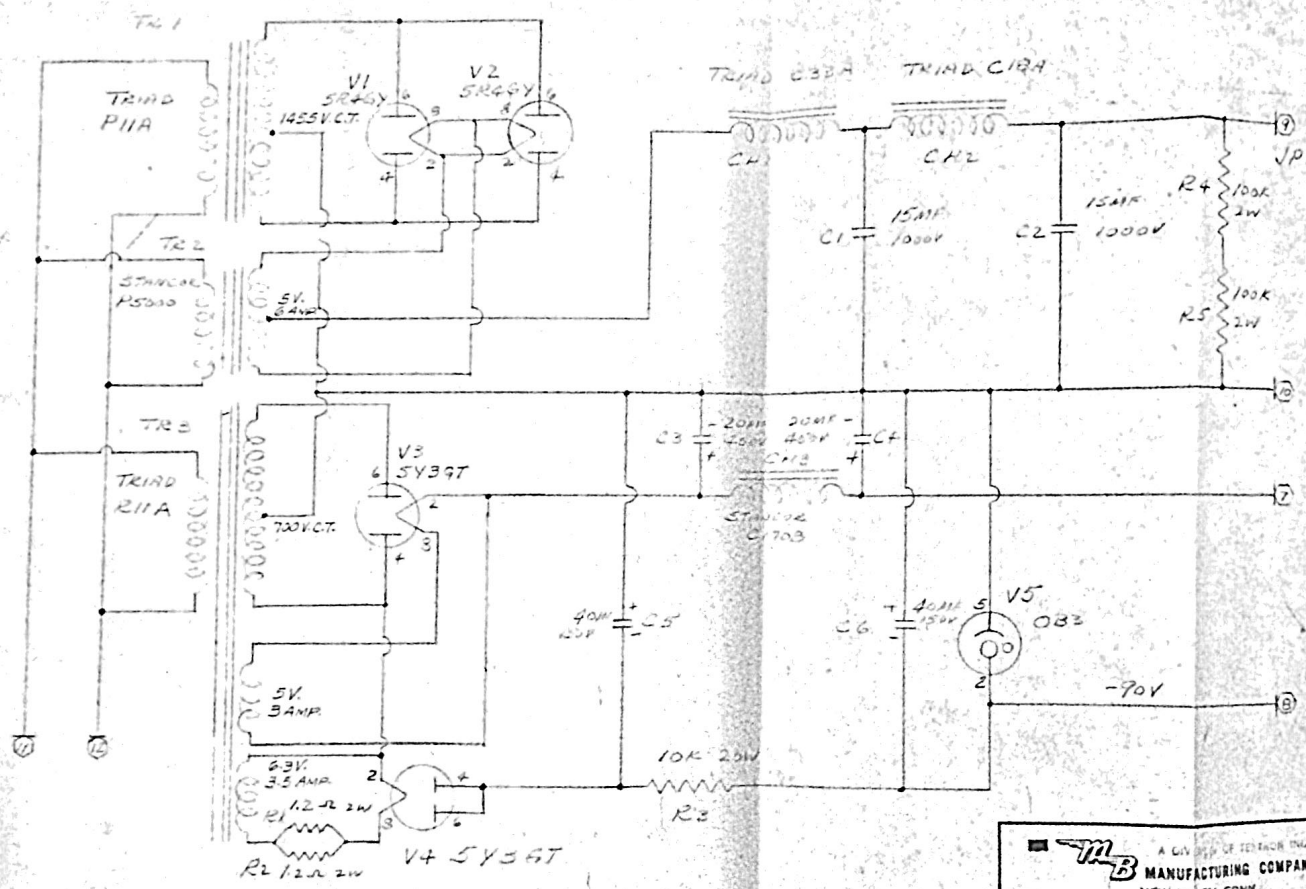 TR 1
TRIAD
P11A
1455V.C.T.
V1
5R4GY
6
4
8
2
V2
5R4GY
6
4
8
2
TRIAD C32A
CH1
TRIAD C18A
CH2
C1
15MF
1000V
C2
15MF
1000V
R4
100K
2W
R5
100K
2W
9
JP
10
TR 2
STANCOR
P5000
5V.
6 AMP.
TR 3
TRIAD
R11A
700V.C.T.
V3
5Y3GT
6
4
2
8
C3
- 20MF
450V
+
20MF -
450V
+
C4
CH3
STANCOR
C1703
7
5V.
3 AMP.
40MF +
C5
-
C6
+ 40MF
- 150V
5
V5
OB3
2
-90V
8
11
12
6.3V.
3.5 AMP.
R1
1.2 Ω 2W
R2 1.2Ω 2W
2
8
4
6
V4 5Y3GT
10K 20W
R3
MB
MANUFACTURING COMPAN